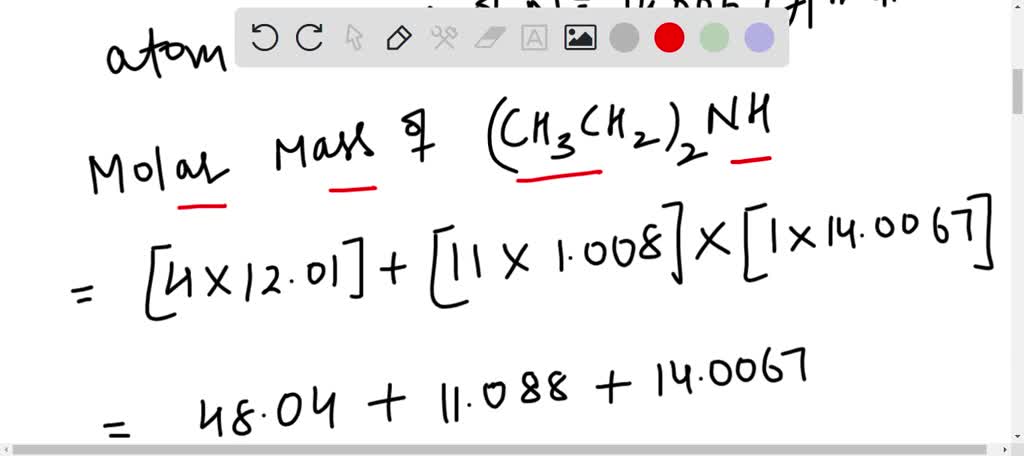 atom
Molar Mass of (CH₃CH₂)₂NH
= [4×12.01] + [11 × 1.008] × [1×14.0067]
= 48.04 + 11.088 + 14.0067